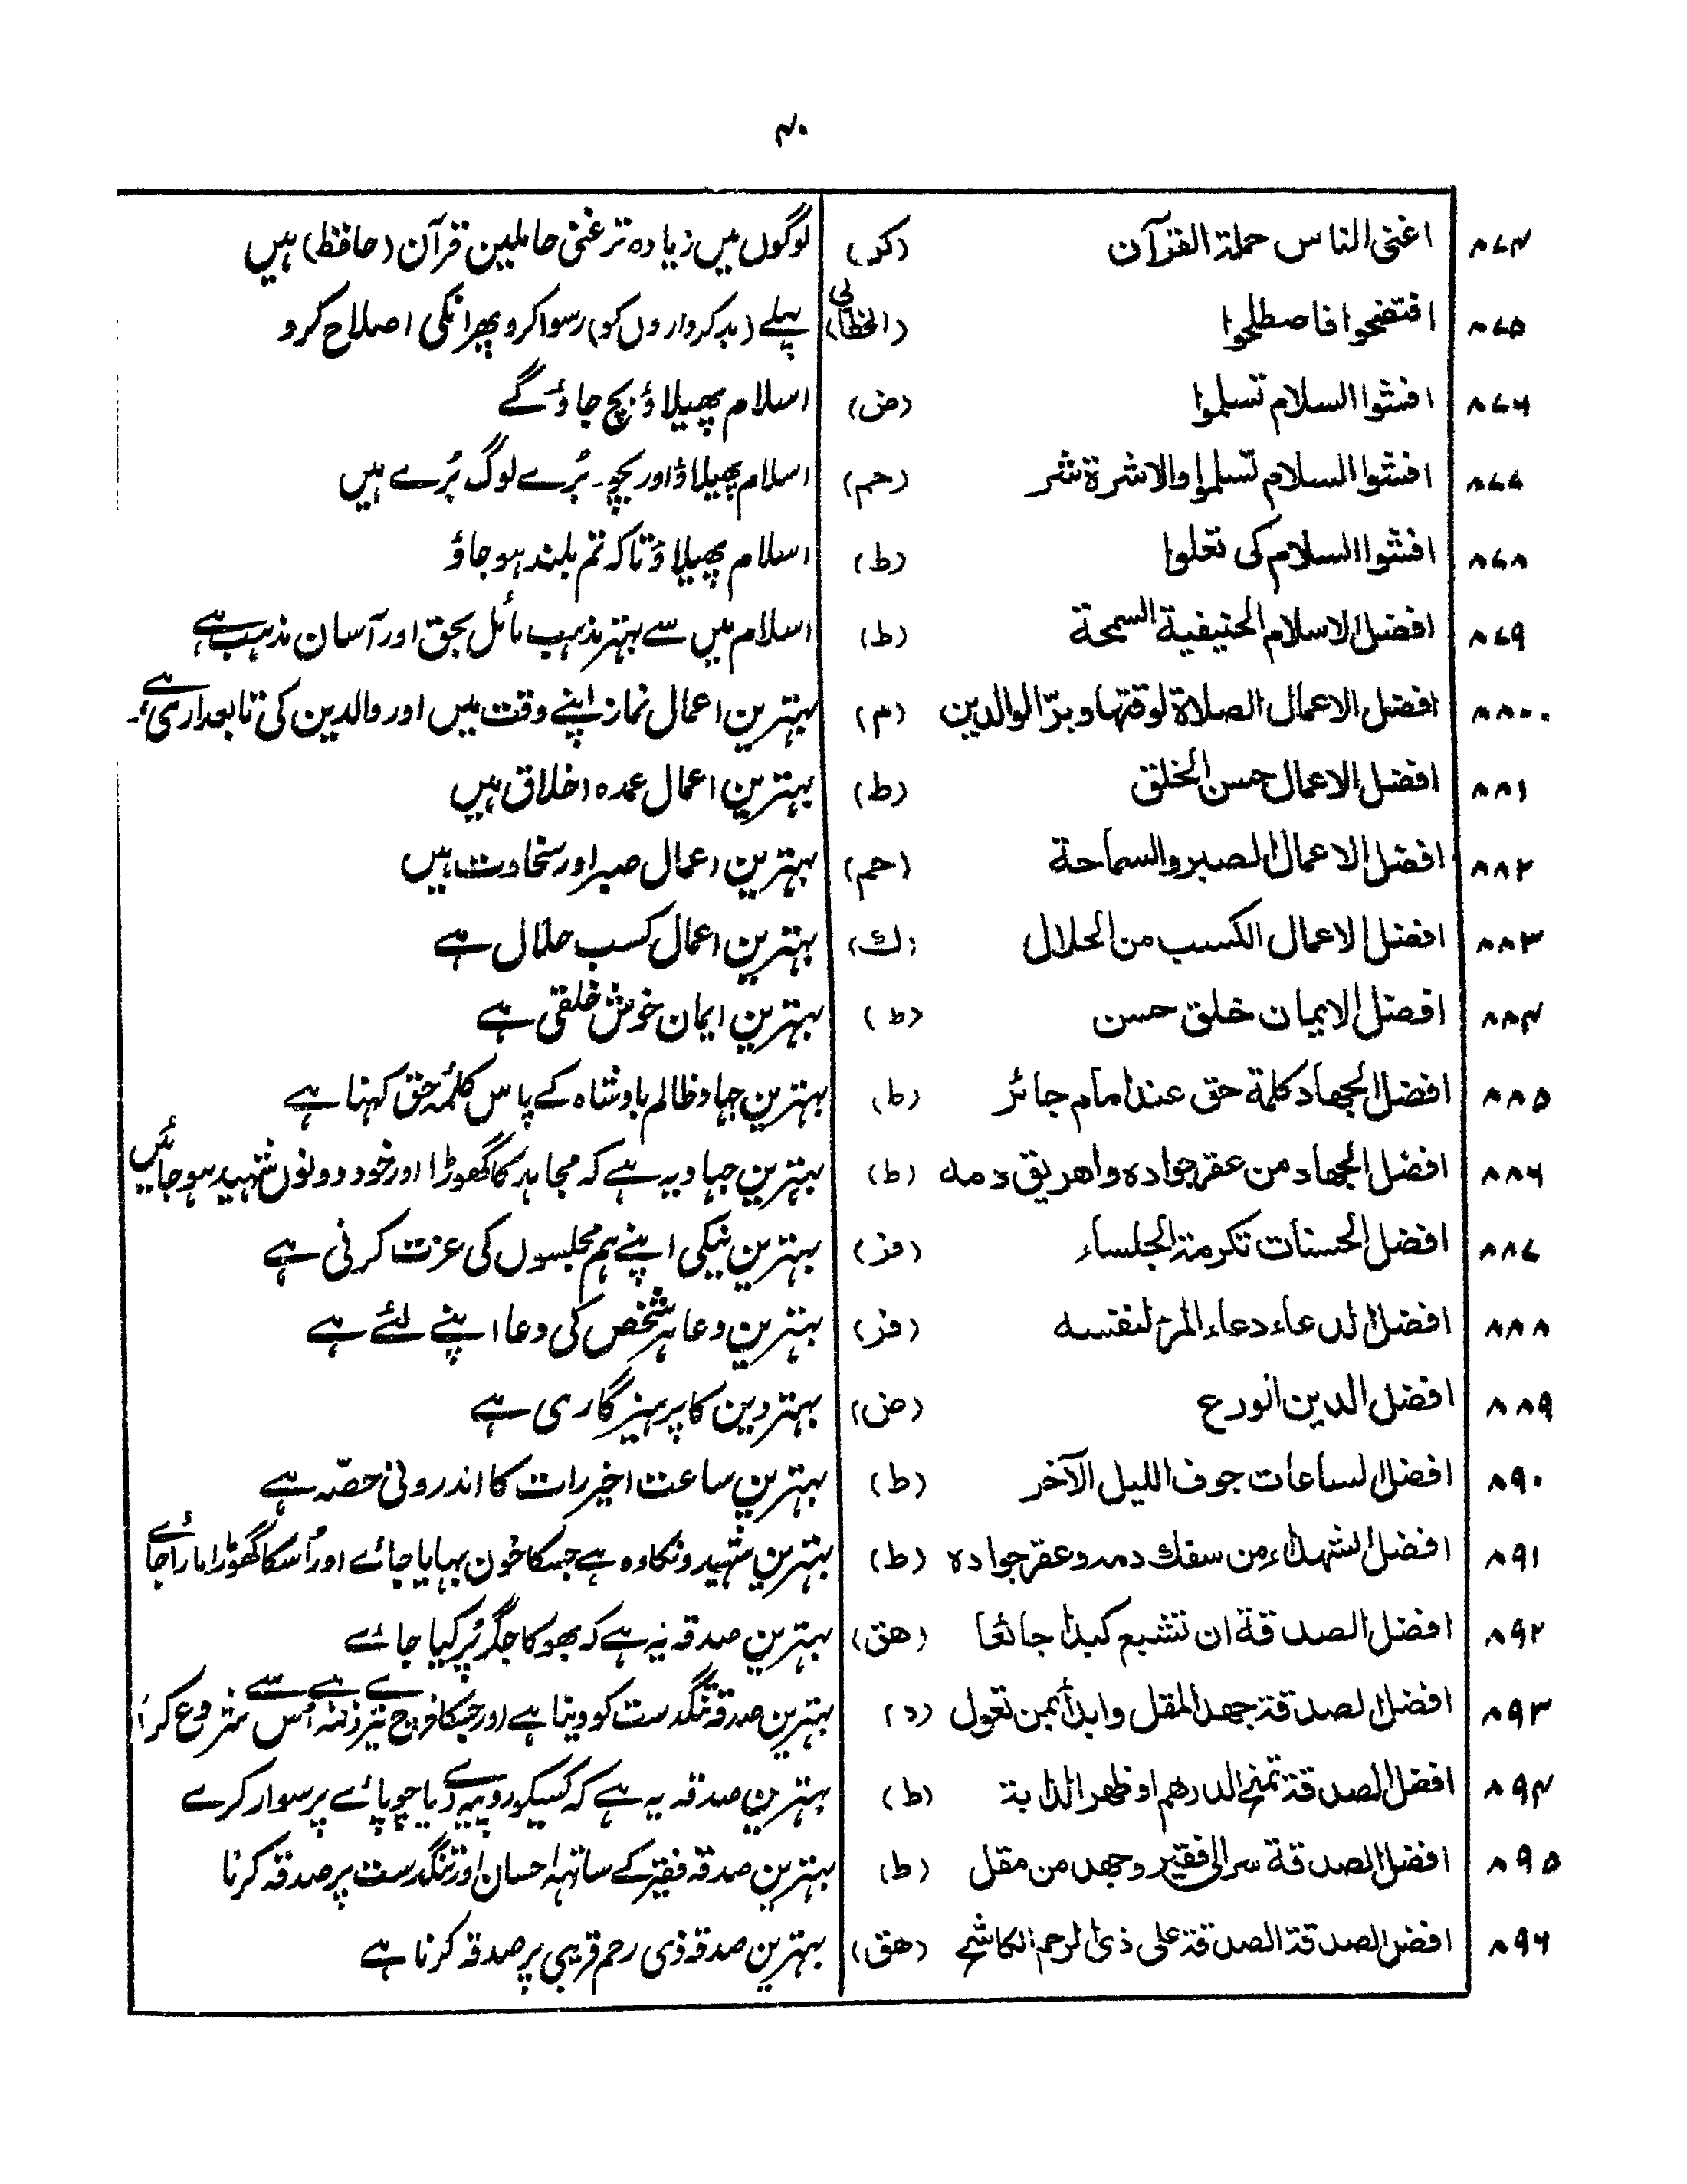 ۴۰
۸۷۴ اغنی الناس حملۃ القرآن (کر) لوگوں میں زیادہ تر غنی حاملین قرآن (حافظ) ہیں
۸۷۵ افتضحوا فاصطلحوا (الخطابی) پہلے (بدکرداروں کو) رسوا کرو پھر انکی اصلاح کرو
۸۷۶ افشوا السلام تسلموا (ض) اسلام پھیلاؤ بچ جاؤ گے
۸۷۷ افشوا السلام تسلموا والاشرۃ شر (حم) اسلام پھیلاؤ اور بچو۔ بُرے لوگ بُرے ہیں
۸۷۸ افشوا السلام کی تعلوا (ط) اسلام پھیلاؤ تاکہ تم بلند ہو جاؤ
۸۷۹ افضل الاسلام الحنیفیۃ السمحۃ (ط) اسلام میں سے بہتر مذہب مائل بحق اور آسان مذہب ہے
۸۸۰ افضل الاعمال الصلاۃ لوقتھا وبرّ الوالدین (م) بہترین اعمال نماز اپنے وقت میں اور والدین کی تابعداری ہے،۔
۸۸۱ افضل الاعمال حسن الخلق (ط) بہترین اعمال عمدہ اخلاق ہیں
۸۸۲ افضل الاعمال الصبر والسماحة (حم) بہترین اعمال صبر اور سخاوت ہیں
۸۸۳ افضل الاعمال الکسب من الحلال (ك) بہترین اعمال کسب حلال ہے
۸۸۴ افضل الایمان خلق حسن (ط) بہترین ایمان خوش خلقی ہے
۸۸۵ افضل الجھاد کلمۃ حق عند امام جائر (ط) بہترین جہاد ظالم بادشاہ کے پاس کلمۂ حق کہنا ہے
۸۸۶ افضل الجھاد من عقر جوادہ واھریق دمہ (ط) بہترین جہاد یہ ہے کہ مجاہد کا گھوڑا اور خود دونوں شہید ہو جائیں
۸۸۷ افضل الحسنات تکرمۃ الجلساء (فر) بہترین نیکی اپنے ہم مجلسوں کی عزت کرنی ہے
۸۸۸ افضل الدعاء دعاء المرء لنفسہ (فر) بہترین دعا ہر شخص کی دعا اپنے لئے ہے
۸۸۹ افضل الدین الورع (ض) بہتر دین کا پرہیز گاری ہے
۸۹۰ افضل الساعات جوف اللیل الآخر (ط) بہترین ساعت اخیر رات کا اندرونی حصّہ ہے
۸۹۱ افضل الشھداء من سفك دمہ وعقر جوادہ (ط) بہترین شہیدونکا وہ ہے جسکا خون بہایا جائے اور اُسکا گھوڑا مارا جائے
۸۹۲ افضل الصدقۃ ان تشبع کبدا جائعا (هق) بہترین صدقہ یہ ہے کہ بھوکا جگر پُر کیا جائے
۸۹۳ افضل الصدقۃ جھد المقل وابدأ بمن تعول (د) بہترین صدقہ تنگدست کو دینا ہے اور جسکا خرچ تیرے ذمہ ہے اُس سے شروع کر
۸۹۴ افضل الصدقۃ تمنح الدرھم او ظھر الدابۃ (ط) بہترین صدقہ یہ ہے کہ کسیکو روپیہ دے یا چوپائے پر سوار کرے
۸۹۵ افضل الصدقۃ سر الی فقیر وجھد من مقل (ط) بہترین صدقہ فقیر کے ساتھ احسان اور تنگدست پر صدقہ کرنا
۸۹۶ افضل الصدقۃ الصدقۃ علی ذی الرحم الکاشح (هق) بہترین صدقہ ذی رحم قریبی پر صدقہ کرنا ہے